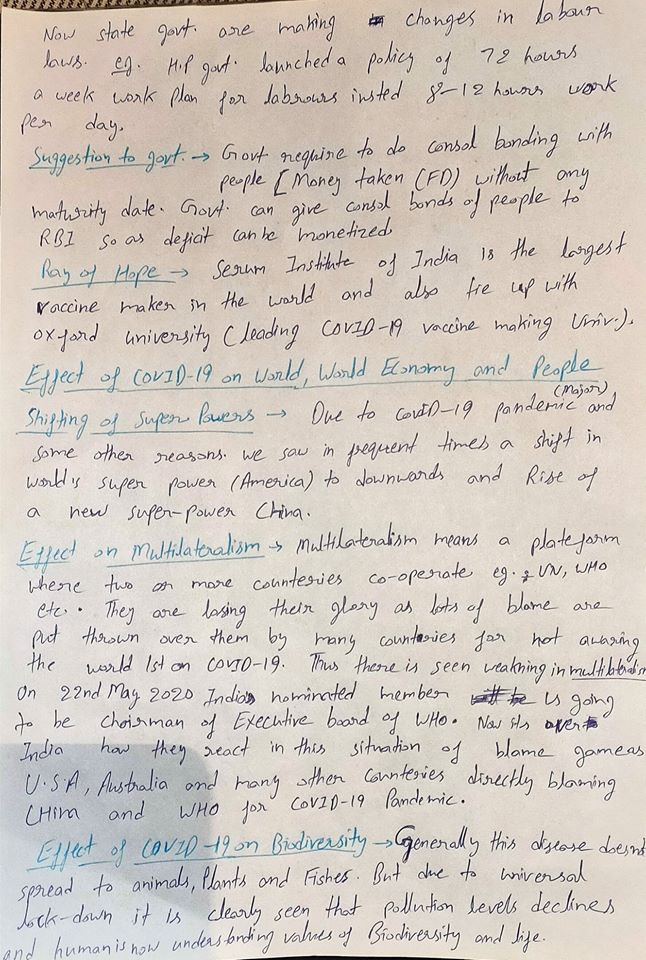 Now state govt. are making changes in labour
laws. eg. H.P govt. launched a policy of 72 hours
a week work plan for labrours insted 8-12 hours work
per day.
Suggestion to govt. → Govt require to do consol bonding with
people [Money taken (FD) without any
maturity date. Govt. can give consol bonds of people to
RBI so as deficit can be monetized.
Ray of Hope → Serum Institute of India is the largest
vaccine maker in the world and also tie up with
oxford university (leading COVID-19 vaccine making Univ.).
Effect of COVID-19 on World, World Economy and People
Shifting of Super Powers → Due to COVID-19 pandemic (Major) and
some other reasons. we saw in frequent times a shift in
world's super power (America) to downwards and Rise of
a new super-power China.
Effect on Multilateralism → Multilateralism means a plateform
where two or more counteries co-operate eg. UN, WHO
etc. They are losing their glory as lots of blame are
put thrown over them by many counteries for not awaring
the world 1st on COVID-19. Thus there is seen weakning in multilateralism
On 22nd May 2020 India nominated member is going
to be Chairman of Executive board of WHO. Now its over
India how they react in this situation of blame gameas
U.S.A, Australia and many other Counteries directly blaming
CHina and WHO for COVID-19 Pandemic.
Effect of COVID-19 on Biodiversity → Generally this disease doesnt
spread to animals, Plants and Fishes. But due to universal
lock-down it is clearly seen that pollution levels declines
and human is now understanding values of Biodiversity and life.